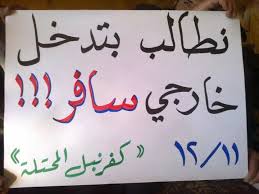 نطالب بتدخل
خارجي سافر!!!
١٢/١١
«كفرنبل المحتلة»